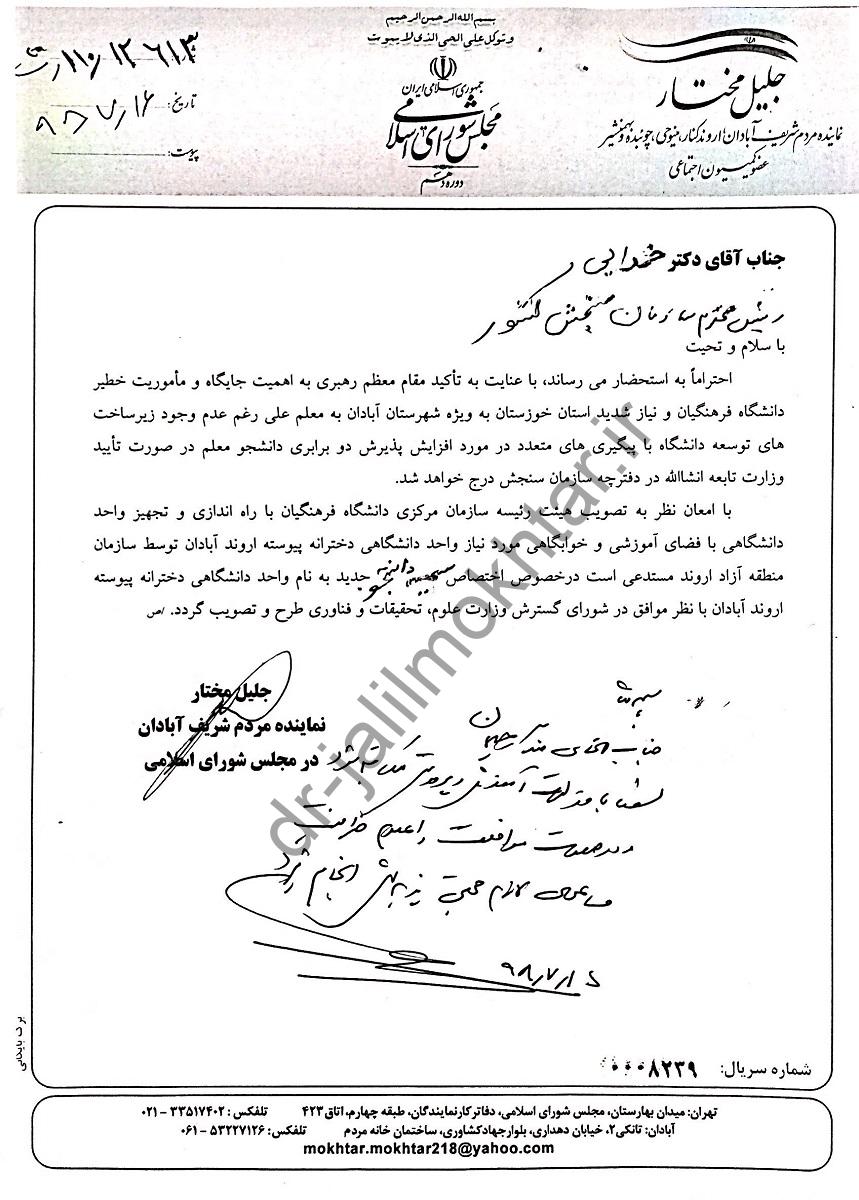 بسم الله الرحمن الرحیم
و توکل علی الحی الذی لایموت
جمهوری اسلامی ایران
مجلس شورای اسلامی
دوره دهم
جلیل مختار
نماینده مردم شریف آبادان، اروندکنار، مینوحی، چوئبده و بهمنشیر
عضو کمیسیون اجتماعی
۱۱۰/۱۲۶۱۳
تاریخ: ۹۸/۷/۱۶
پیوست:
جناب آقای دکتر خدایی
رئیس محترم سازمان سنجش کشور
با سلام و تحیت
احتراماً به استحضار می رساند، با عنایت به تأکید مقام معظم رهبری به اهمیت جایگاه و مأموریت خطیر
دانشگاه فرهنگیان و نیاز شدید استان خوزستان به ویژه شهرستان آبادان به معلم علی رغم عدم وجود زیرساخت
های توسعه دانشگاه با پیگیری های متعدد در مورد افزایش پذیرش دو برابری دانشجو معلم در صورت تأیید
وزارت تابعه انشاالله در دفترچه سازمان سنجش درج خواهد شد.
با امعان نظر به تصویب هیئت رئیسه سازمان مرکزی دانشگاه فرهنگیان با راه اندازی و تجهیز واحد
دانشگاهی با فضای آموزشی و خوابگاهی مورد نیاز واحد دانشگاهی دخترانه پیوسته اروند آبادان توسط سازمان
منطقه آزاد اروند مستدعی است درخصوص اختصاص جدید به نام واحد دانشگاهی دخترانه پیوسته
اروند آبادان با نظر موافق در شورای گسترش وزارت علوم، تحقیقات و فناوری طرح و تصویب گردد. /ص
جلیل مختار
نماینده مردم شریف آبادان
در مجلس شورای اسلامی
جناب آقای
موافقت را اعلام
انجام
۹۸/۷/
dr-jalilmokhtar.ir
برگ بایگانی
شماره سریال: ۰۰۰۸۲۳۹
تهران: میدان بهارستان، مجلس شورای اسلامی، دفاتر کار نمایندگان، طبقه چهارم، اتاق ۴۲۳ تلفکس: ۳۳۵۱۷۴۰۲ – ۰۲۱
آبادان: تانکی۲، خیابان دهداری، بلوار جهادکشاورزی، ساختمان خانه مردم تلفکس: ۵۳۲۲۷۱۲۶ – ۰۶۱
mokhtar.mokhtar218@yahoo.com